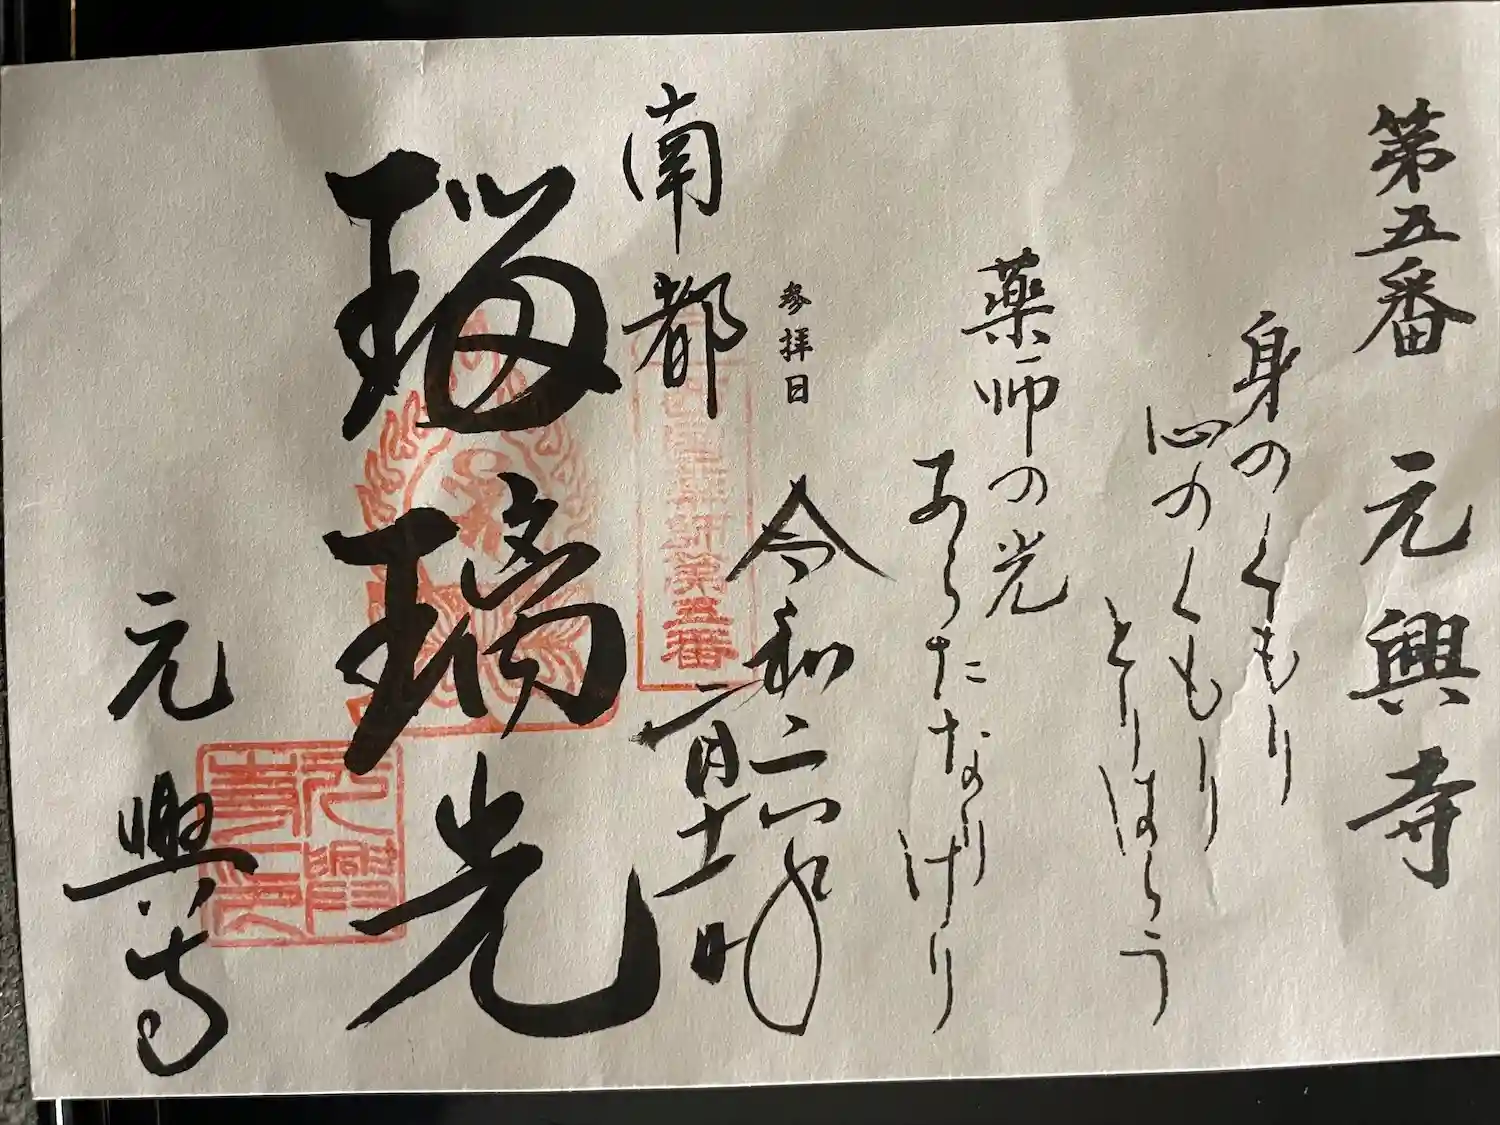 第五番 元興寺
身のくもり
心のくもり
とりはらう
薬師の光
あらたなりけり
参拝日
令和六年
二月十一日
南都
西国薬師第五番
瑠璃光
元興寺
元興寺印